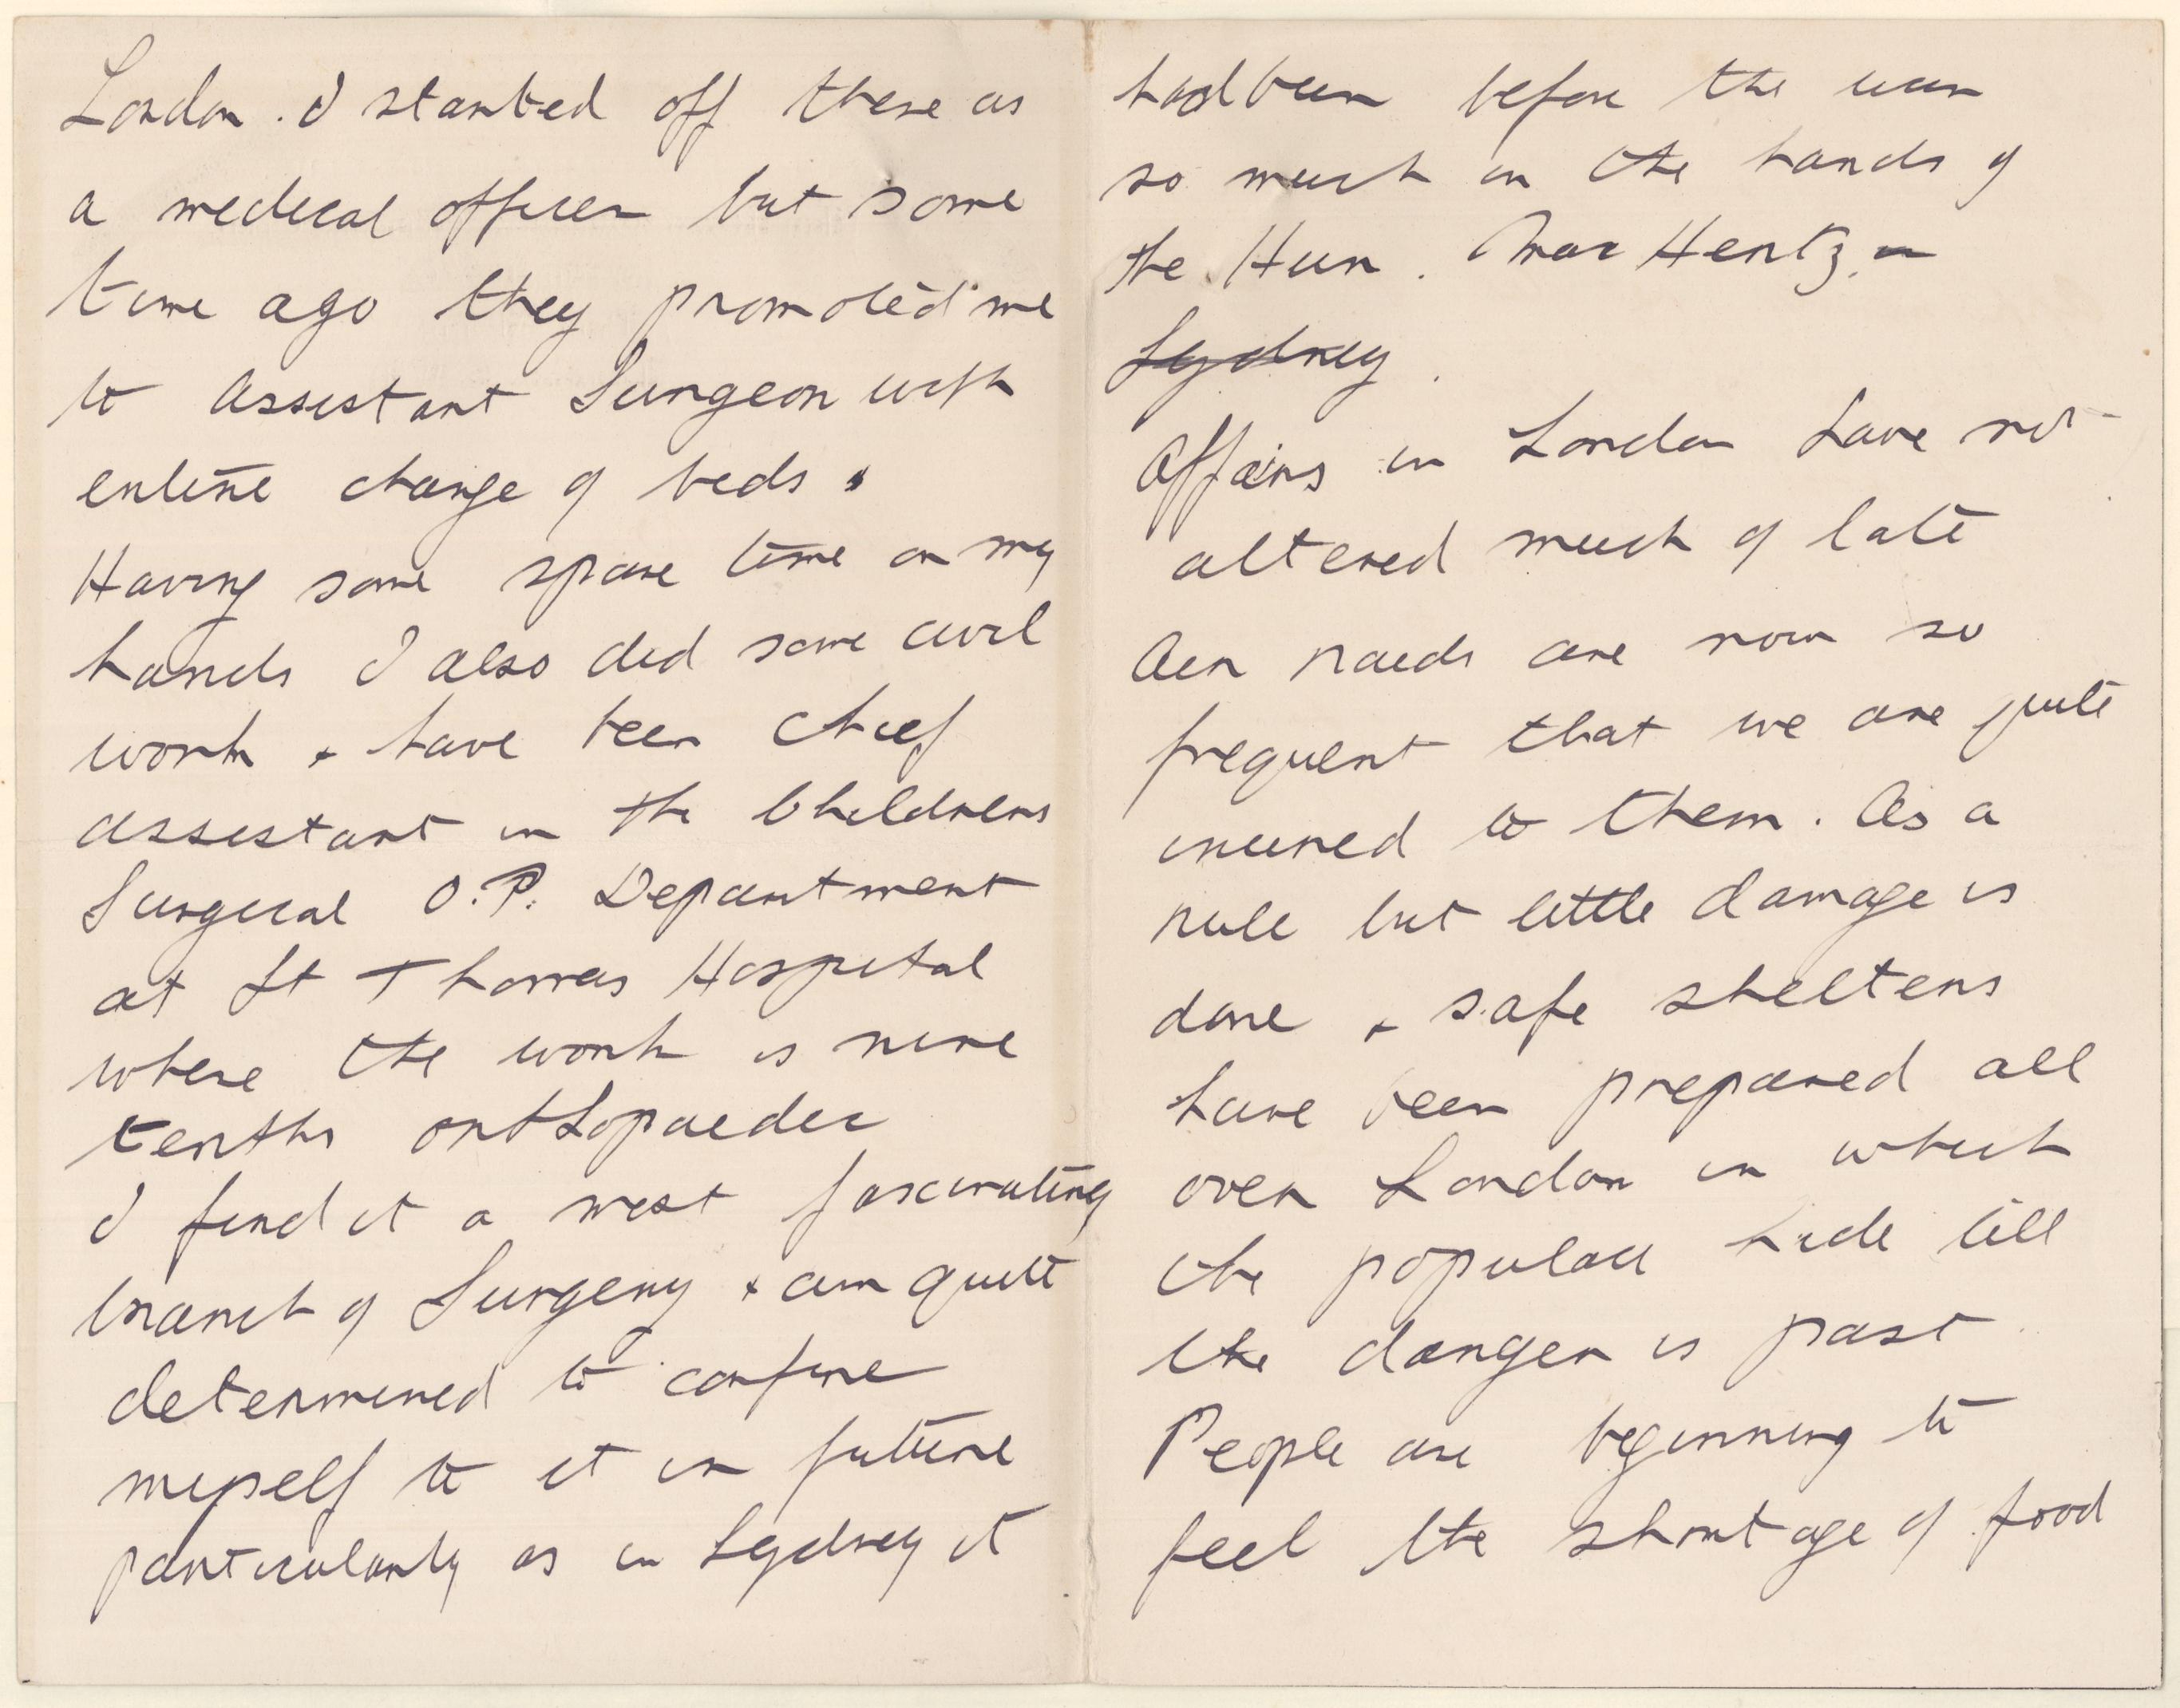 London. I started off there as
a medical officer but some
time ago they promoted me
to Assistant Surgeon with
entire charge of beds.
Having some spare time on my
hands I also did some civil
work + have been chief
assistant in the Childrens
Surgical O.P. Department
at St Thomas Hospital
where the work is nine
tenths orthopaedic
I find it a most fascinating
branch of Surgery + am quite
determined to confine
myself to it in future
particularly as in Sydney it
had been before the war
so much in the hands of
the Hun. Max Hertz. in
Sydney.
Affairs in London have not
altered much of late
Air raids are now so
frequent that we are quite
inured to them. As a
rule but little damage is
done + safe shelters
have been prepared all
over London in which
the populace hide till
the danger is past
People are beginning to
feel the shortage of food